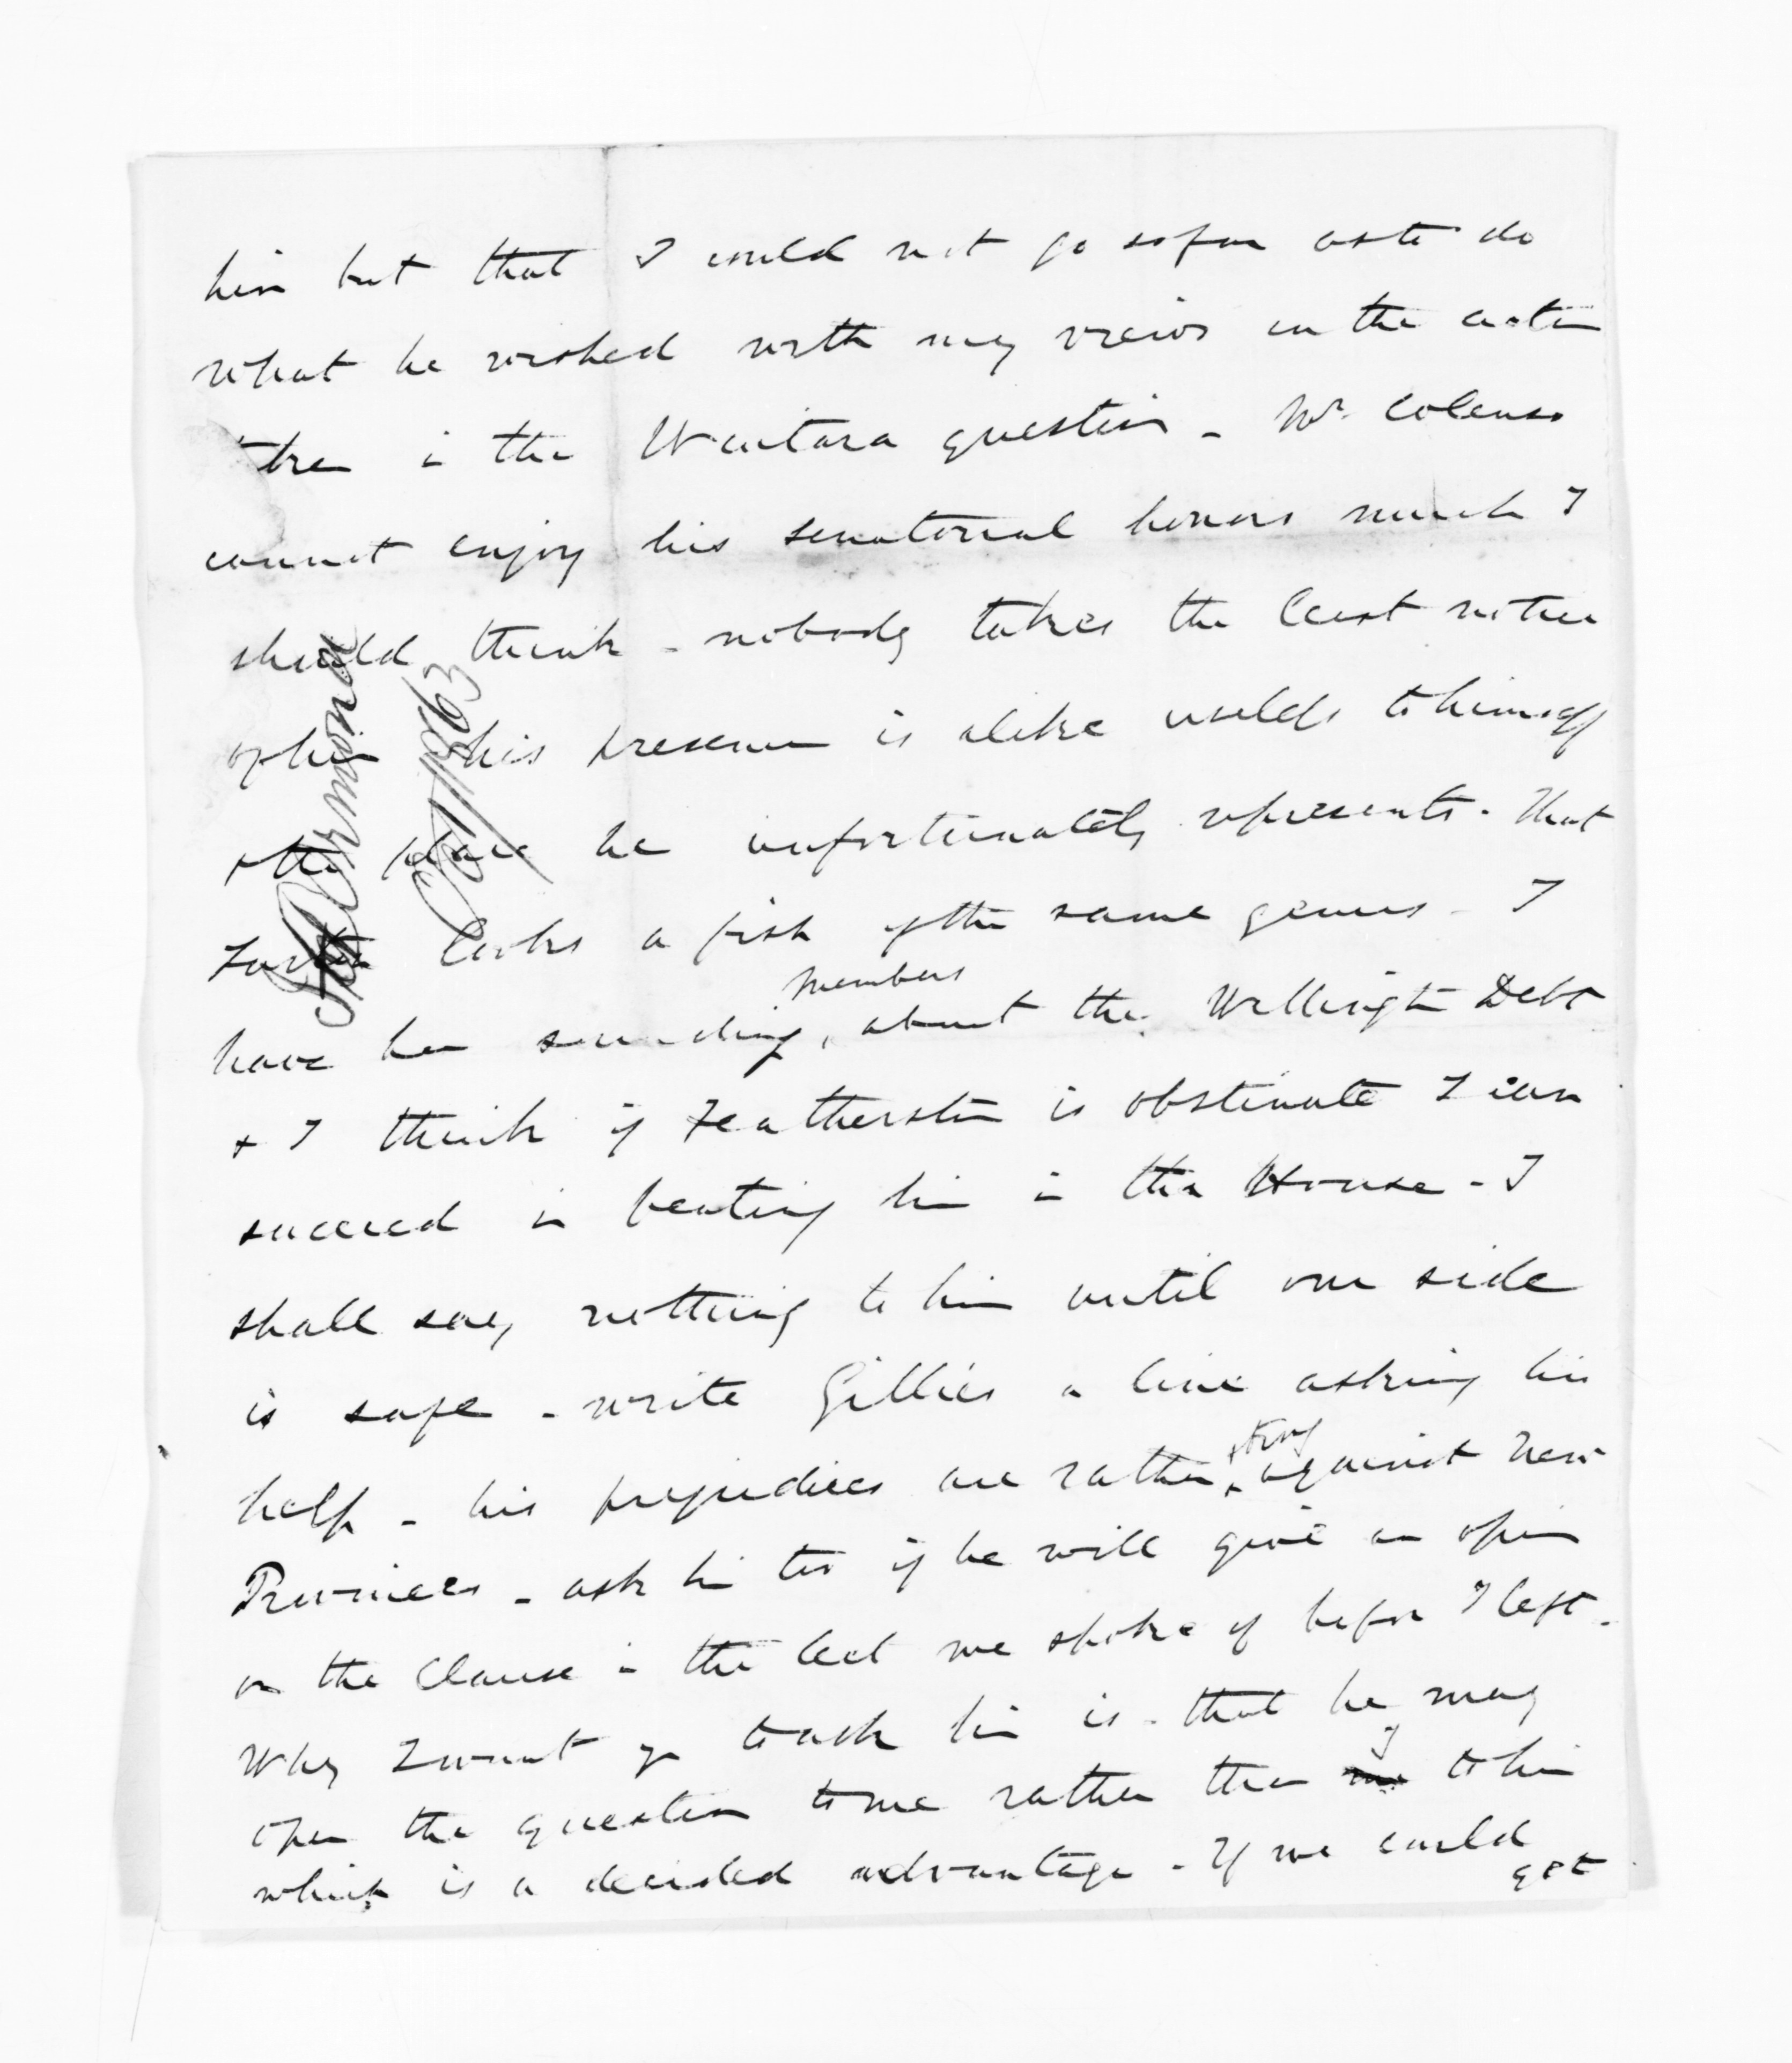 him but that I could not go so far as to do
what he wished with my views on the action
taken in the Waitara question - Mr. Colenso
cannot enjoy his senatorial honors much I
should think - nobody takes the least notice
of him his presence is alike useless to himself
& the place he unfortunately represents. That
looks a fish of the same genus - I
have been sounding members about the Wellington Debt
& I think if Featherston is obstinate I can
succeed in beating him in the House - I
shall say nothing to him until our side
is safe - write Gillies a line asking his
help - his prejudices are rather strong against New
Provinces - ask him too if he will give an opin
on the Clause in the we spoke of before I left -
Why I want you to ask him is - that he may
open the question to me rather than I to him
which is a decided advantage - If we could
get
Ormond
1863